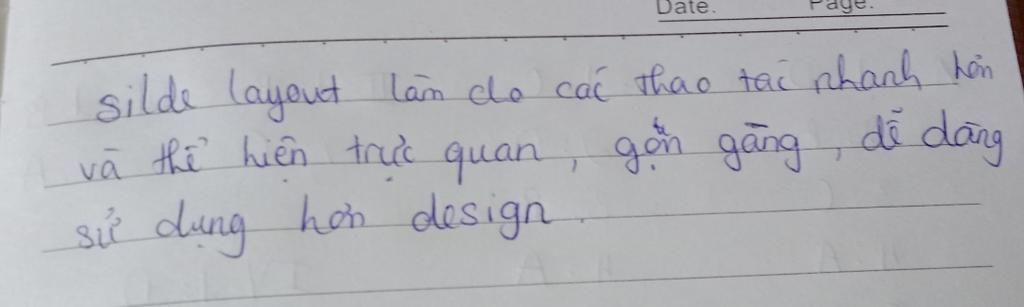 Date. Page.
silde layout làm do các thao tác nhanh hơn
và thể hiện trực quan, gọn gàng, dễ dàng
sử dụng hơn design.